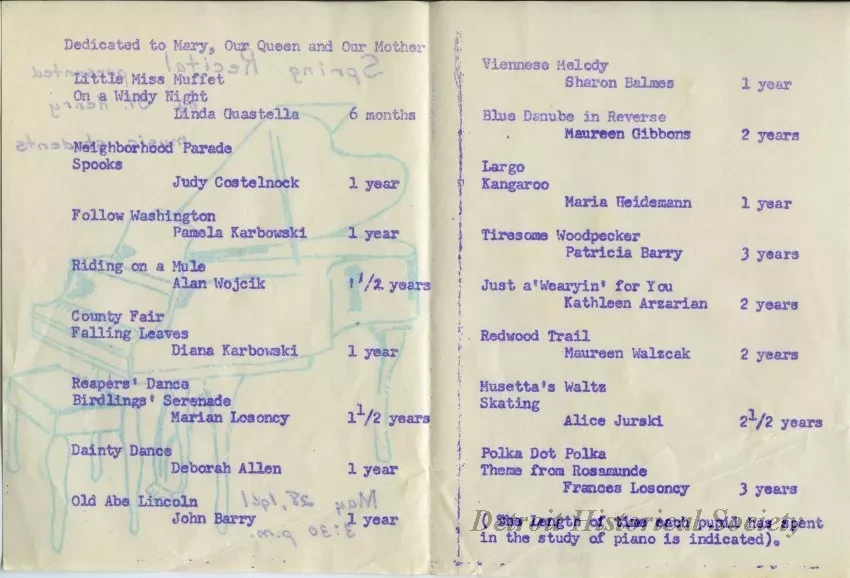 Dedicated to Mary, Our Queen and Our Mother
Little Miss Muffet
On a Windy Night
Linda Guastella 6 months
Neighborhood Parade
Spooks
Judy Costelnock 1 year
Follow Washington
Pamela Karbowski 1 year
Riding on a Mule
Alan Wojcik 1 1/2 years
County Fair
Falling Leaves
Diana Karbowski 1 year
Reapers' Dance
Birdlings' Serenade
Marian Losoncy 1 1/2 years
Dainty Dance
Deborah Allen 1 year
Old Abe Lincoln
John Barry 1 year
Spring Recital
presented
Henry
music students
May 28, 1961
3:30 p.m.
Viennese Melody
Sharon Balmes 1 year
Blue Danube in Reverse
Maureen Gibbons 2 years
Largo
Kangaroo
Maria Heidemann 1 year
Tiresome Woodpecker
Patricia Barry 3 years
Just a'Wearyin' for You
Kathleen Arzarian 2 years
Redwood Trail
Maureen Walzcak 2 years
Musetta's Waltz
Skating
Alice Jurski 2 1/2 years
Polka Dot Polka
Theme from Rosamunde
Frances Losoncy 3 years
( The length of time each pupil has spent
in the study of piano is indicated).
Detroit Historical Society